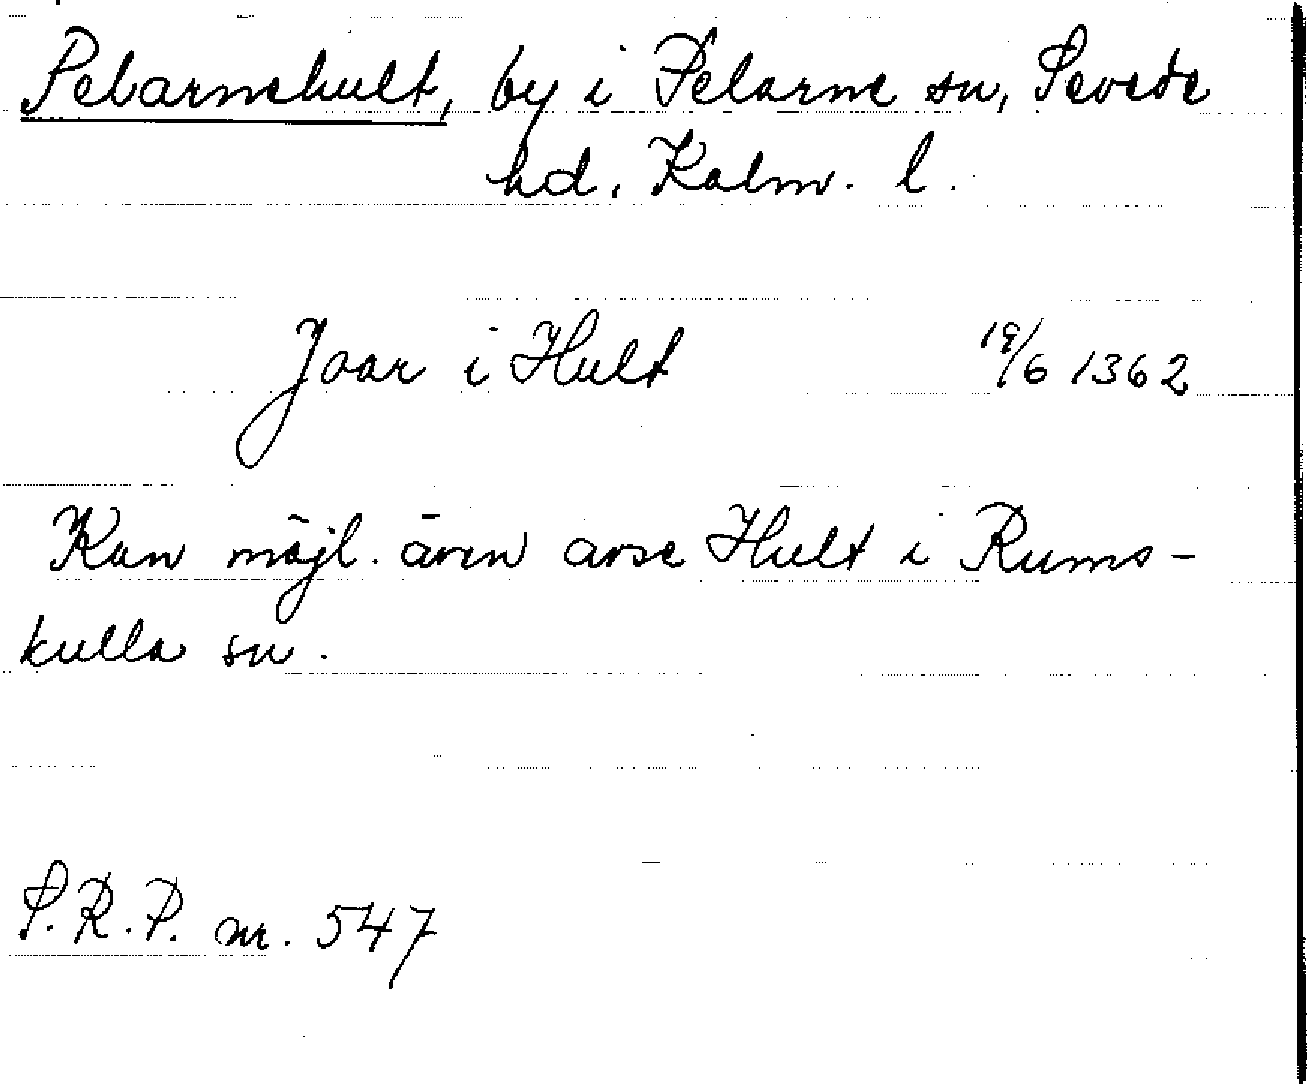 Pelarnehult, by i Pelarne sn, Sevede
hd, Kalm. l.
Joar i Hult 19/6 1362
Kan möjl. även avse Hult i Rums-
kulla sn.
S.R.P. nr. 547